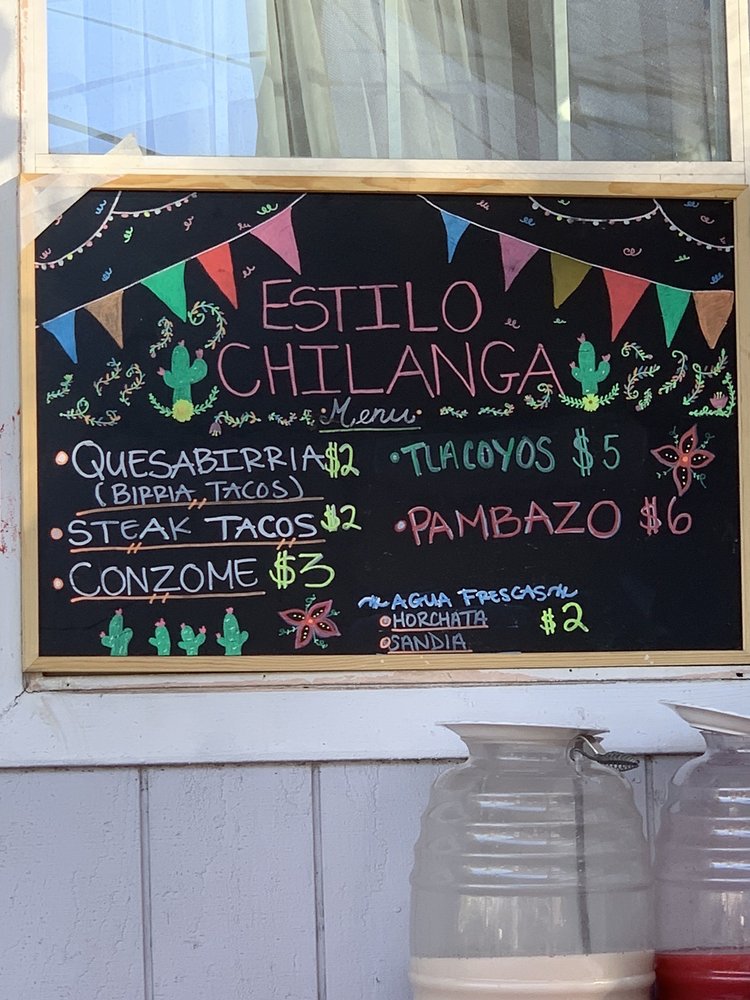 ESTILO
CHILANGA
Menu
• QUESABIRRIA $2
(BIRRIA TACOS)
• STEAK TACOS $2
• CONZOME $3
• TLACOYOS $5
• PAMBAZO $6
AGUA FRESCAS
• HORCHATA
$2
• SANDIA